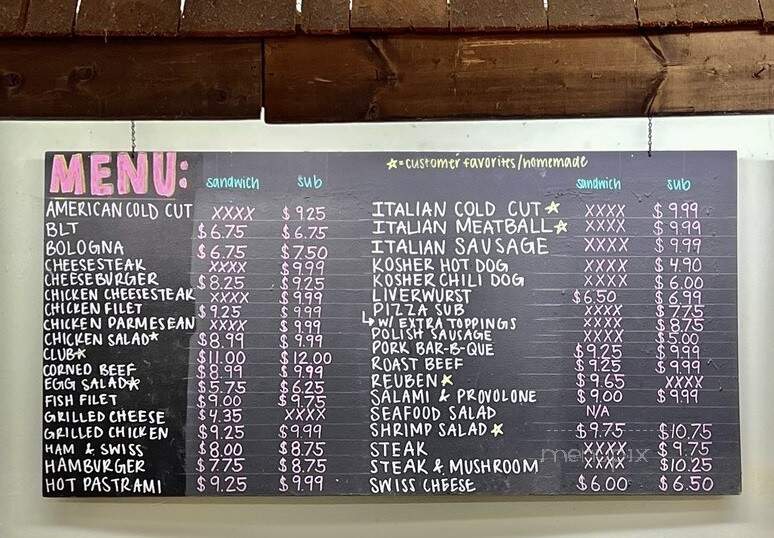 MENU: sandwich sub
AMERICAN COLD CUT XXXX $9.25
BLT $6.75 $6.75
BOLOGNA $6.75 $7.50
CHEESESTEAK XXXX $9.99
CHEESEBURGER $8.25 $9.25
CHICKEN CHEESESTEAK XXXX $9.99
CHICKEN FILET $9.25 $9.99
CHICKEN PARMESEAN XXXX $9.99
CHICKEN SALAD★ $8.99 $9.99
CLUB★ $11.00 $12.00
CORNED BEEF $8.99 $9.99
EGG SALAD★ $5.75 $6.25
FISH FILET $9.00 $9.75
GRILLED CHEESE $4.35 XXXX
GRILLED CHICKEN $9.25 $9.99
HAM & SWISS $8.00 $8.75
HAMBURGER $7.75 $8.75
HOT PASTRAMI $9.25 $9.99
★=customer favorites/homemade
sandwich sub
ITALIAN COLD CUT★ XXXX $9.99
ITALIAN MEATBALL★ XXXX $9.99
ITALIAN SAUSAGE XXXX $9.99
KOSHER HOT DOG XXXX $4.90
KOSHER CHILI DOG XXXX $6.00
LIVERWURST $6.50 $6.99
PIZZA SUB XXXX $7.75
↳W/ EXTRA TOPPINGS XXXX $8.75
POLISH SAUSAGE XXXX $5.00
PORK BAR-B-QUE $9.25 $9.99
ROAST BEEF $9.25 $9.99
REUBEN★ $9.65 XXXX
SALAMI & PROVOLONE $9.00 $9.99
SEAFOOD SALAD N/A
SHRIMP SALAD★ $9.75 $10.75
STEAK XXXX $9.75
STEAK & MUSHROOM XXXX $10.25
SWISS CHEESE $6.00 $6.50
menupix